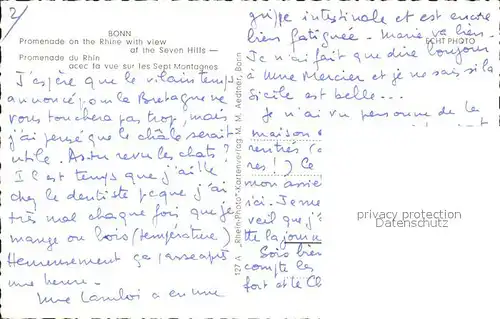 2/
BONN
Promenade on the Rhine with view
at the Seven Hills —
Promenade du Rhin
acec la vue sur les Sept Montagnes
J'espère que le vilain temps
annoncé pour la Bretagne ne
vous touchera pas trop, mais
j'ai pensé que le châle serait
utile. As-tu revu les chats?
Il est temps que j'aille
chez le dentiste pcque j'ai
très mal chaque fois que je
mange ou bois (température)
Heureusement ça passe après
une heure.
Mme a eu une
127 A „Rhein-Photo" Kartenverlag M. M. Aedtner, Bonn
ECHT PHOTO
grippe intestinale et est encore
bien fatiguée - Marie va bien -
Je n'ai fait que dire bonjour
à Mme Mercier et je ne sais si la
Sicile est belle...
Je n'ai vu personne de la
maison
rentrés
res!) Ce
mon
ici. Je me
veil que j'
te la
Sois bien
compte les
fort et le Ch
privacy protection
Datenschutz